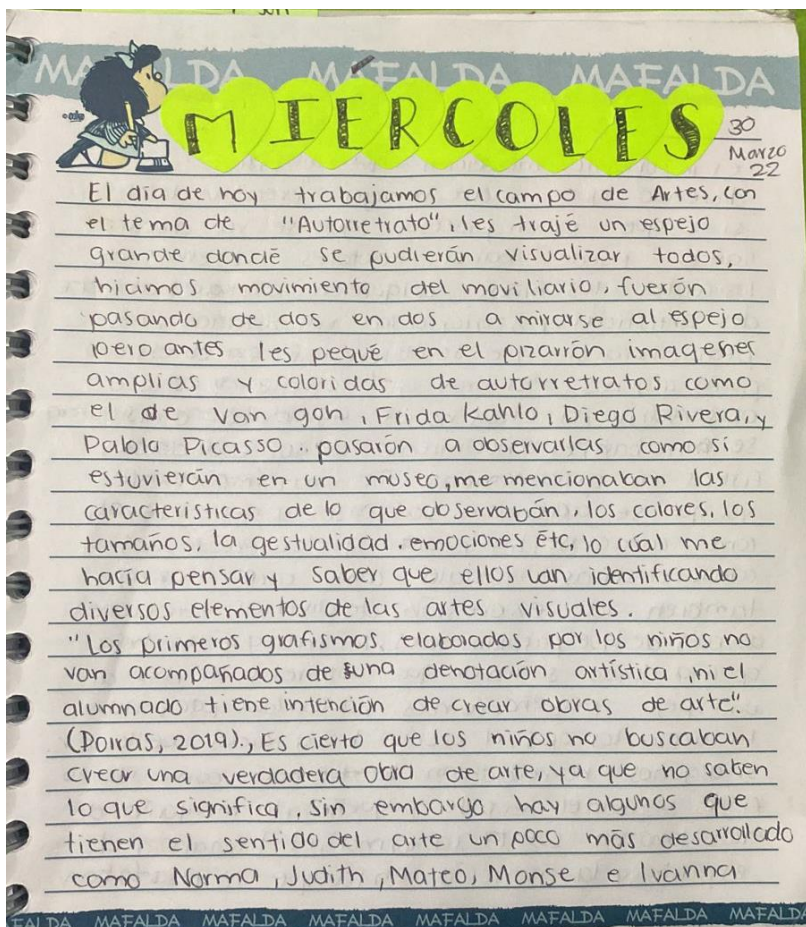 MAFALDA MAFALDA MAFALDA
MIÉRCOLES
30
Marzo
22
El día de hoy trabajamos el campo de Artes, con
el tema de "Autorretrato", les trajé un espejo
grande dondé se pudierán visualizar todos,
hicimos movimiento del moviliario, fuerón
pasando de dos en dos a mirarse al espejo
pero antes les pegué en el pizarrón imagenes
amplias y coloridas de autorretratos como
el de Van goh, Frida Kahlo, Diego Rivera, y
Pablo Picasso.. pasarón a observarlas como si
estuvierán en un museo, me mencionaban las
caracteristicas de lo que observabán, los colores, los
tamaños, la gestualidad. emociones étc, lo cúal me
hacía pensar y saber que ellos van identificando
diversos elementos de las artes visuales.
"Los primeros grafismos elaborados por los niños no
van acompañados de una denotación artística, ni el
alumnado tiene intención de crear obras de arte".
(Poiras, 2019)., Es cierto que los niños no buscaban
crear una verdadera obra de arte, ya que no saben
lo que significa, sin embargo hay algunos que
tienen el sentido del arte un poco más desarrollado
como Norma, Judith, Mateo, Monse e Ivanna
FALDA MAFALDA MAFALDA MAFALDA MAFALDA MAFALDA MAFALDA MAFALDA